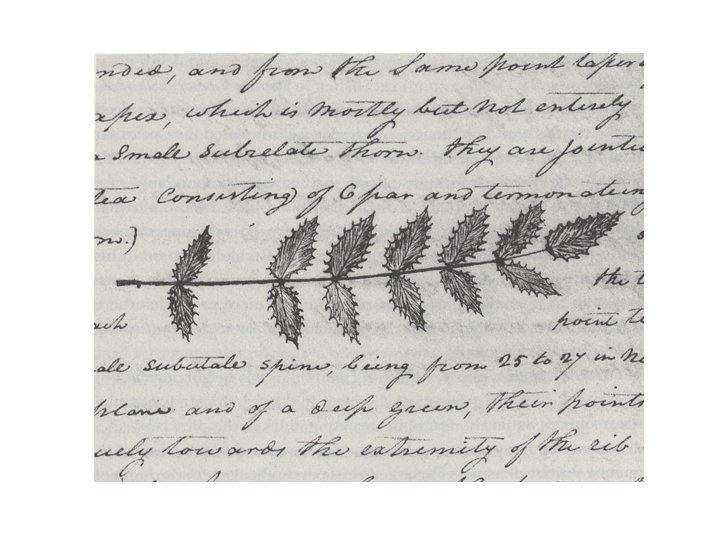 nded, and from the Same point taper
apex, which is mostly but not entirely
a Smale subulate thorn. they are jointed
tea Consisting of 6 par and termonateing
on.)
s
the t
ach
point to
ale subutale spine, being from 25 to 27 in n
plane and of a deep green, their points
uely towards the extremity of the rib